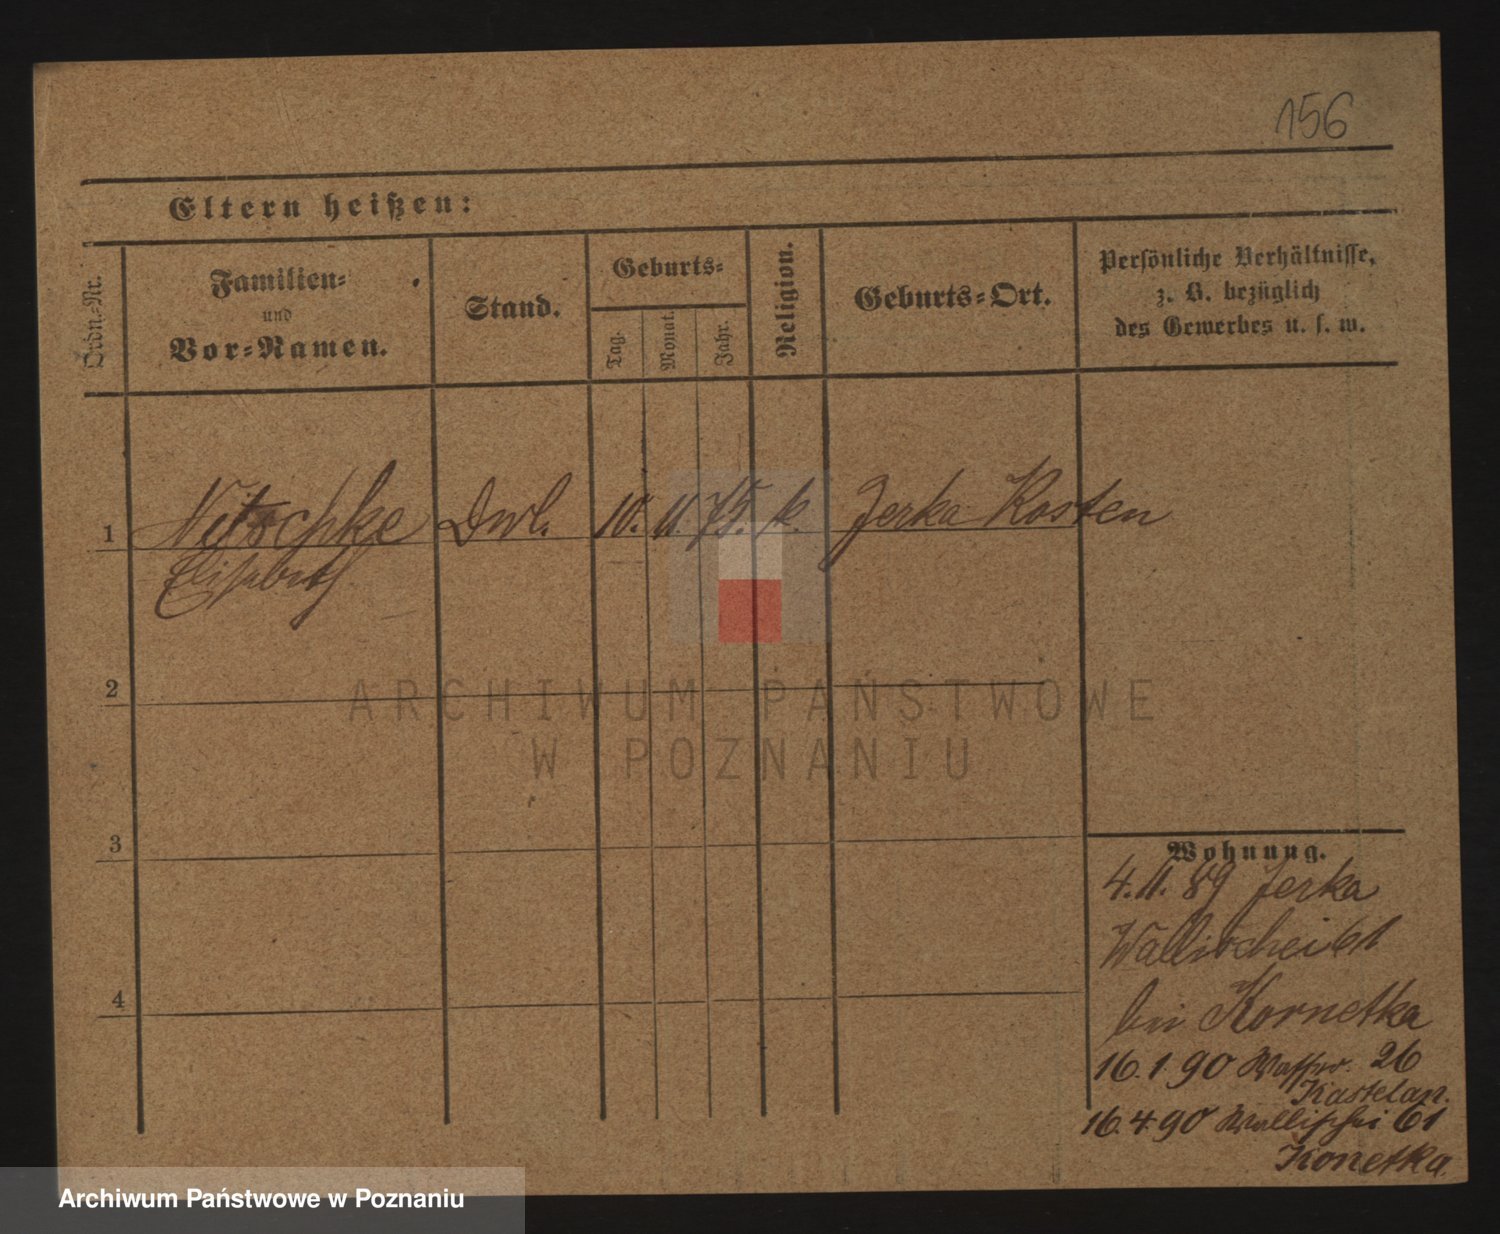 156
Eltern heißen:
Ordn.-Nr.
Familien-
und
Vor-Namen.
Stand.
Geburts-
Tag.
Monat.
Jahr.
Religion.
Geburts-Ort.
Persönliche Verhältnisse,
z. B. bezüglich
des Gewerbes u. s. w.
1 Nitschke Dwl. 10. 11. 75. k. Jerka Kosten
Elisabeth
2
3
4
Wohnung.
4. 11. 89 Jerka
Wallischei 61
bei Kornetka
16. 1. 90 Wasser. 26
Kastelan.
16. 4. 90 Wallischei 61
Konetka
ARCHIWUM PAŃSTWOWE
W POZNANIU
Archiwum Państwowe w Poznaniu